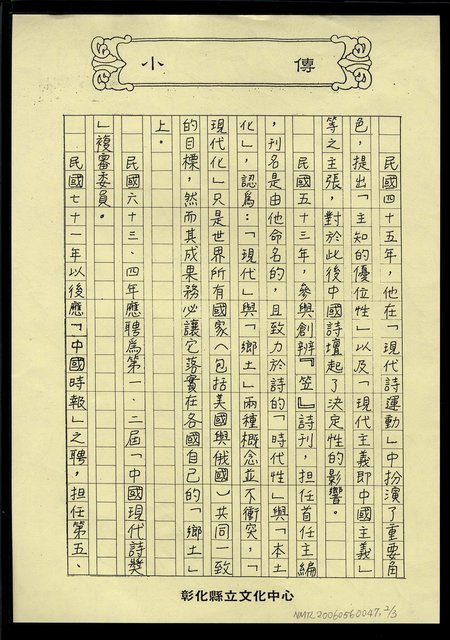 小傳
民國四十五年，他在「現代詩運動」中扮演了重要角
色，提出「主知的優位性」以及「現代主義即中國主義」
等之主張，對於此後中國詩壇起了決定性的影響。
民國五十三年，參與創辦『笠』詩刊，担任首任主編
，刊名是由他命名的，且致力於詩的「時代性」與「本土
化」，認為：「現代」與「鄉土」兩種概念並不衝突，「
現代化」只是世界所有國家（包括美國與俄國）共同一致
的目標，然而其成果務必讓它落實在各國自己的「鄉土」
上。
民國六十三、四年應聘為第一、二屆「中國現代詩獎
」複審委員。
民國七十一年以後應「中國時報」之聘，担任第五、
彰化縣立文化中心
NMTL20060560047, 2/3